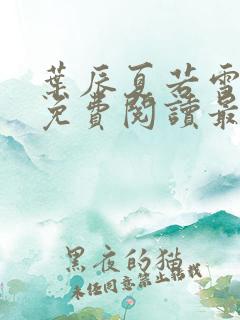 葉辰夏若雪
免費閱讀最
黑夜的猫
未经同意禁止转载